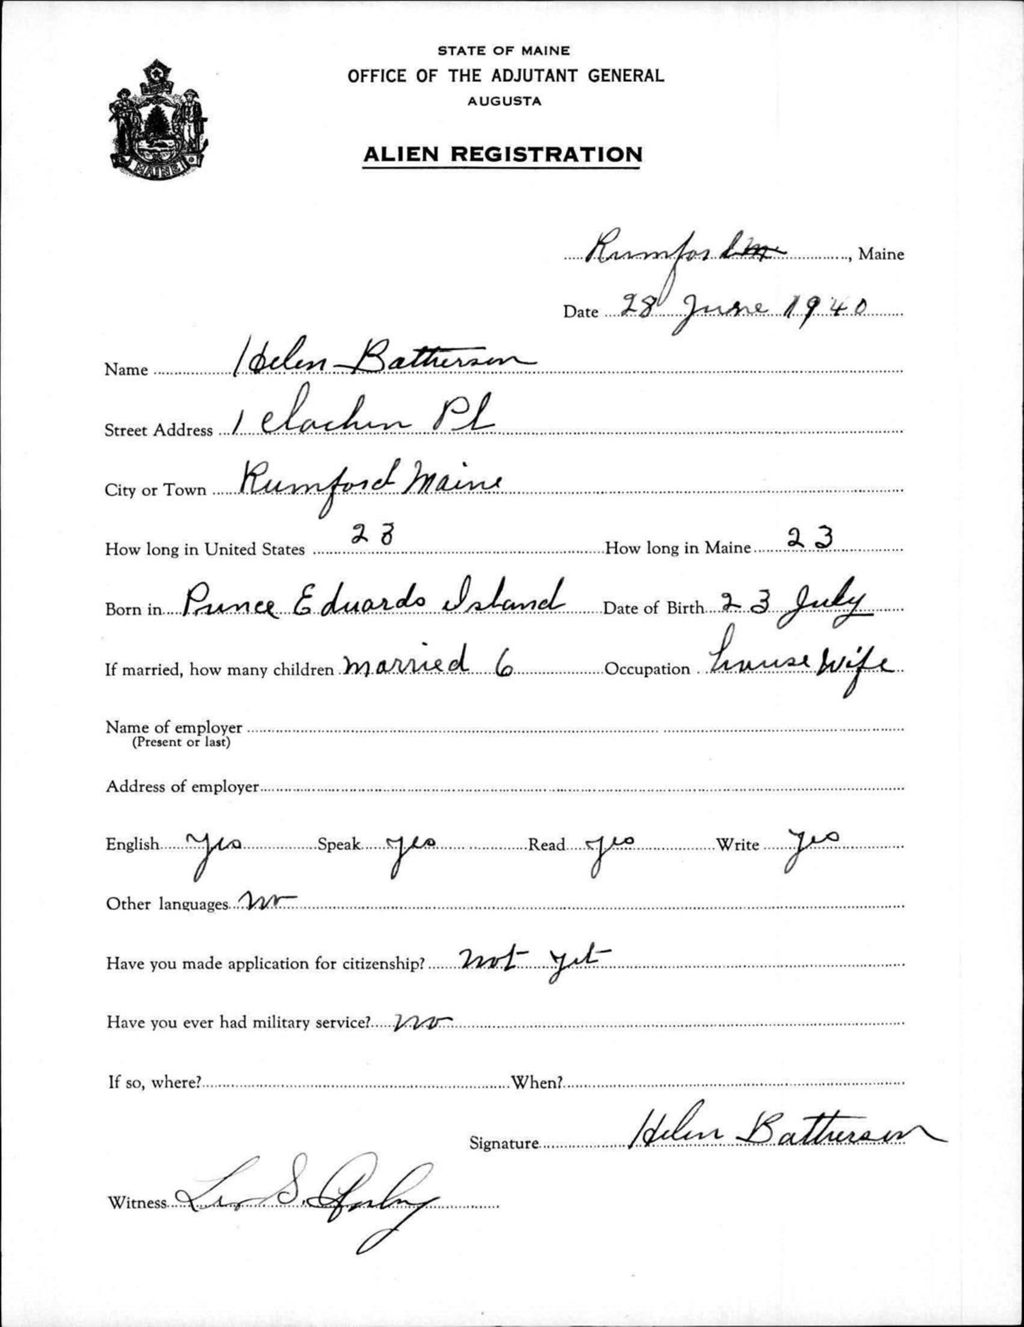 STATE OF MAINE
OFFICE OF THE ADJUTANT GENERAL
AUGUSTA
ALIEN REGISTRATION
MAINE
Rumford, Maine
Date 28 June 1940
Name Helen Batherson
Street Address 1 Clachin Pl
City or Town Rumford Maine
How long in United States 23 How long in Maine 23
Born in Prince Eduards Island Date of Birth 23 July
If married, how many children married 6 Occupation house wife
Name of employer
(Present or last)
Address of employer
English Yes Speak yes Read yes Write yes
Other languages no
Have you made application for citizenship? not yet
Have you ever had military service? no
If so, where? When?
Signature Helen Batherson
Witness S.